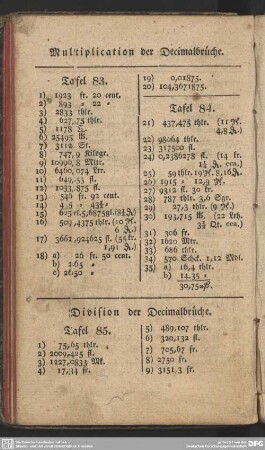 Multiplication der Decimalbrüche.
Tafel 83.
1) 1923 fr. 20 cent.
2) 893 » 22 »
3) 2833 thlr.
4) 627,75 thlr.
5) 1178
6) 25495 W.
7) 3112 Sr.
8) 747,9 Kilogr.
9) 10990,8 Mtr.
10) 6460,074 Ltr.
11) 649,53 fl.
12) 1033,875 fl.
13) 546 fr. 92 cent.
14) 4,5 » 43½ »
15) 625 rl. 5,6875 gl. (8¾
16) 509,4375 thlr. (10
6
17) 3662,924625 fl. (55 kr.
1,91
18) a) 26 fr. 50 cent.
b) 2.65 »
c) 26.50 »
19) 0,01875.
20) 104,3671875.
Tafel 84.
21) 437,475 thlr. (11
4,8
22) 98064 thlr.
23) 317500 fl.
24) 0,2386278 fl. (14 kr.
1¼ cca.)
25) 59 thlr. 19 8,16
26) 1915 » 12,9
27) 9312 fl. 30 kr.
28) 787 thlr. 3,6 Sgr.
29) 27,3 thlr. (9
30) 193,715 W. (22 Lth.
3½ Qt. cca.)
31) 306 fr.
32) 1620 Mtr.
33) 686 thlr.
34) 570 Schf. 1,12 Mdl.
35) a) 16,4 thlr.
b) 14.35 »
30,75
Division der Decimalbrüche.
Tafel 85.
1) 75,65 thlr.
2) 2009,425 fl.
3) 1227,0833 Mk.
4) 17,34 fr.
5) 489,107 thlr.
6) 320,132 fl.
7) 705,67 fr.
8) 2750 fr.
9) 3151,3 fr.